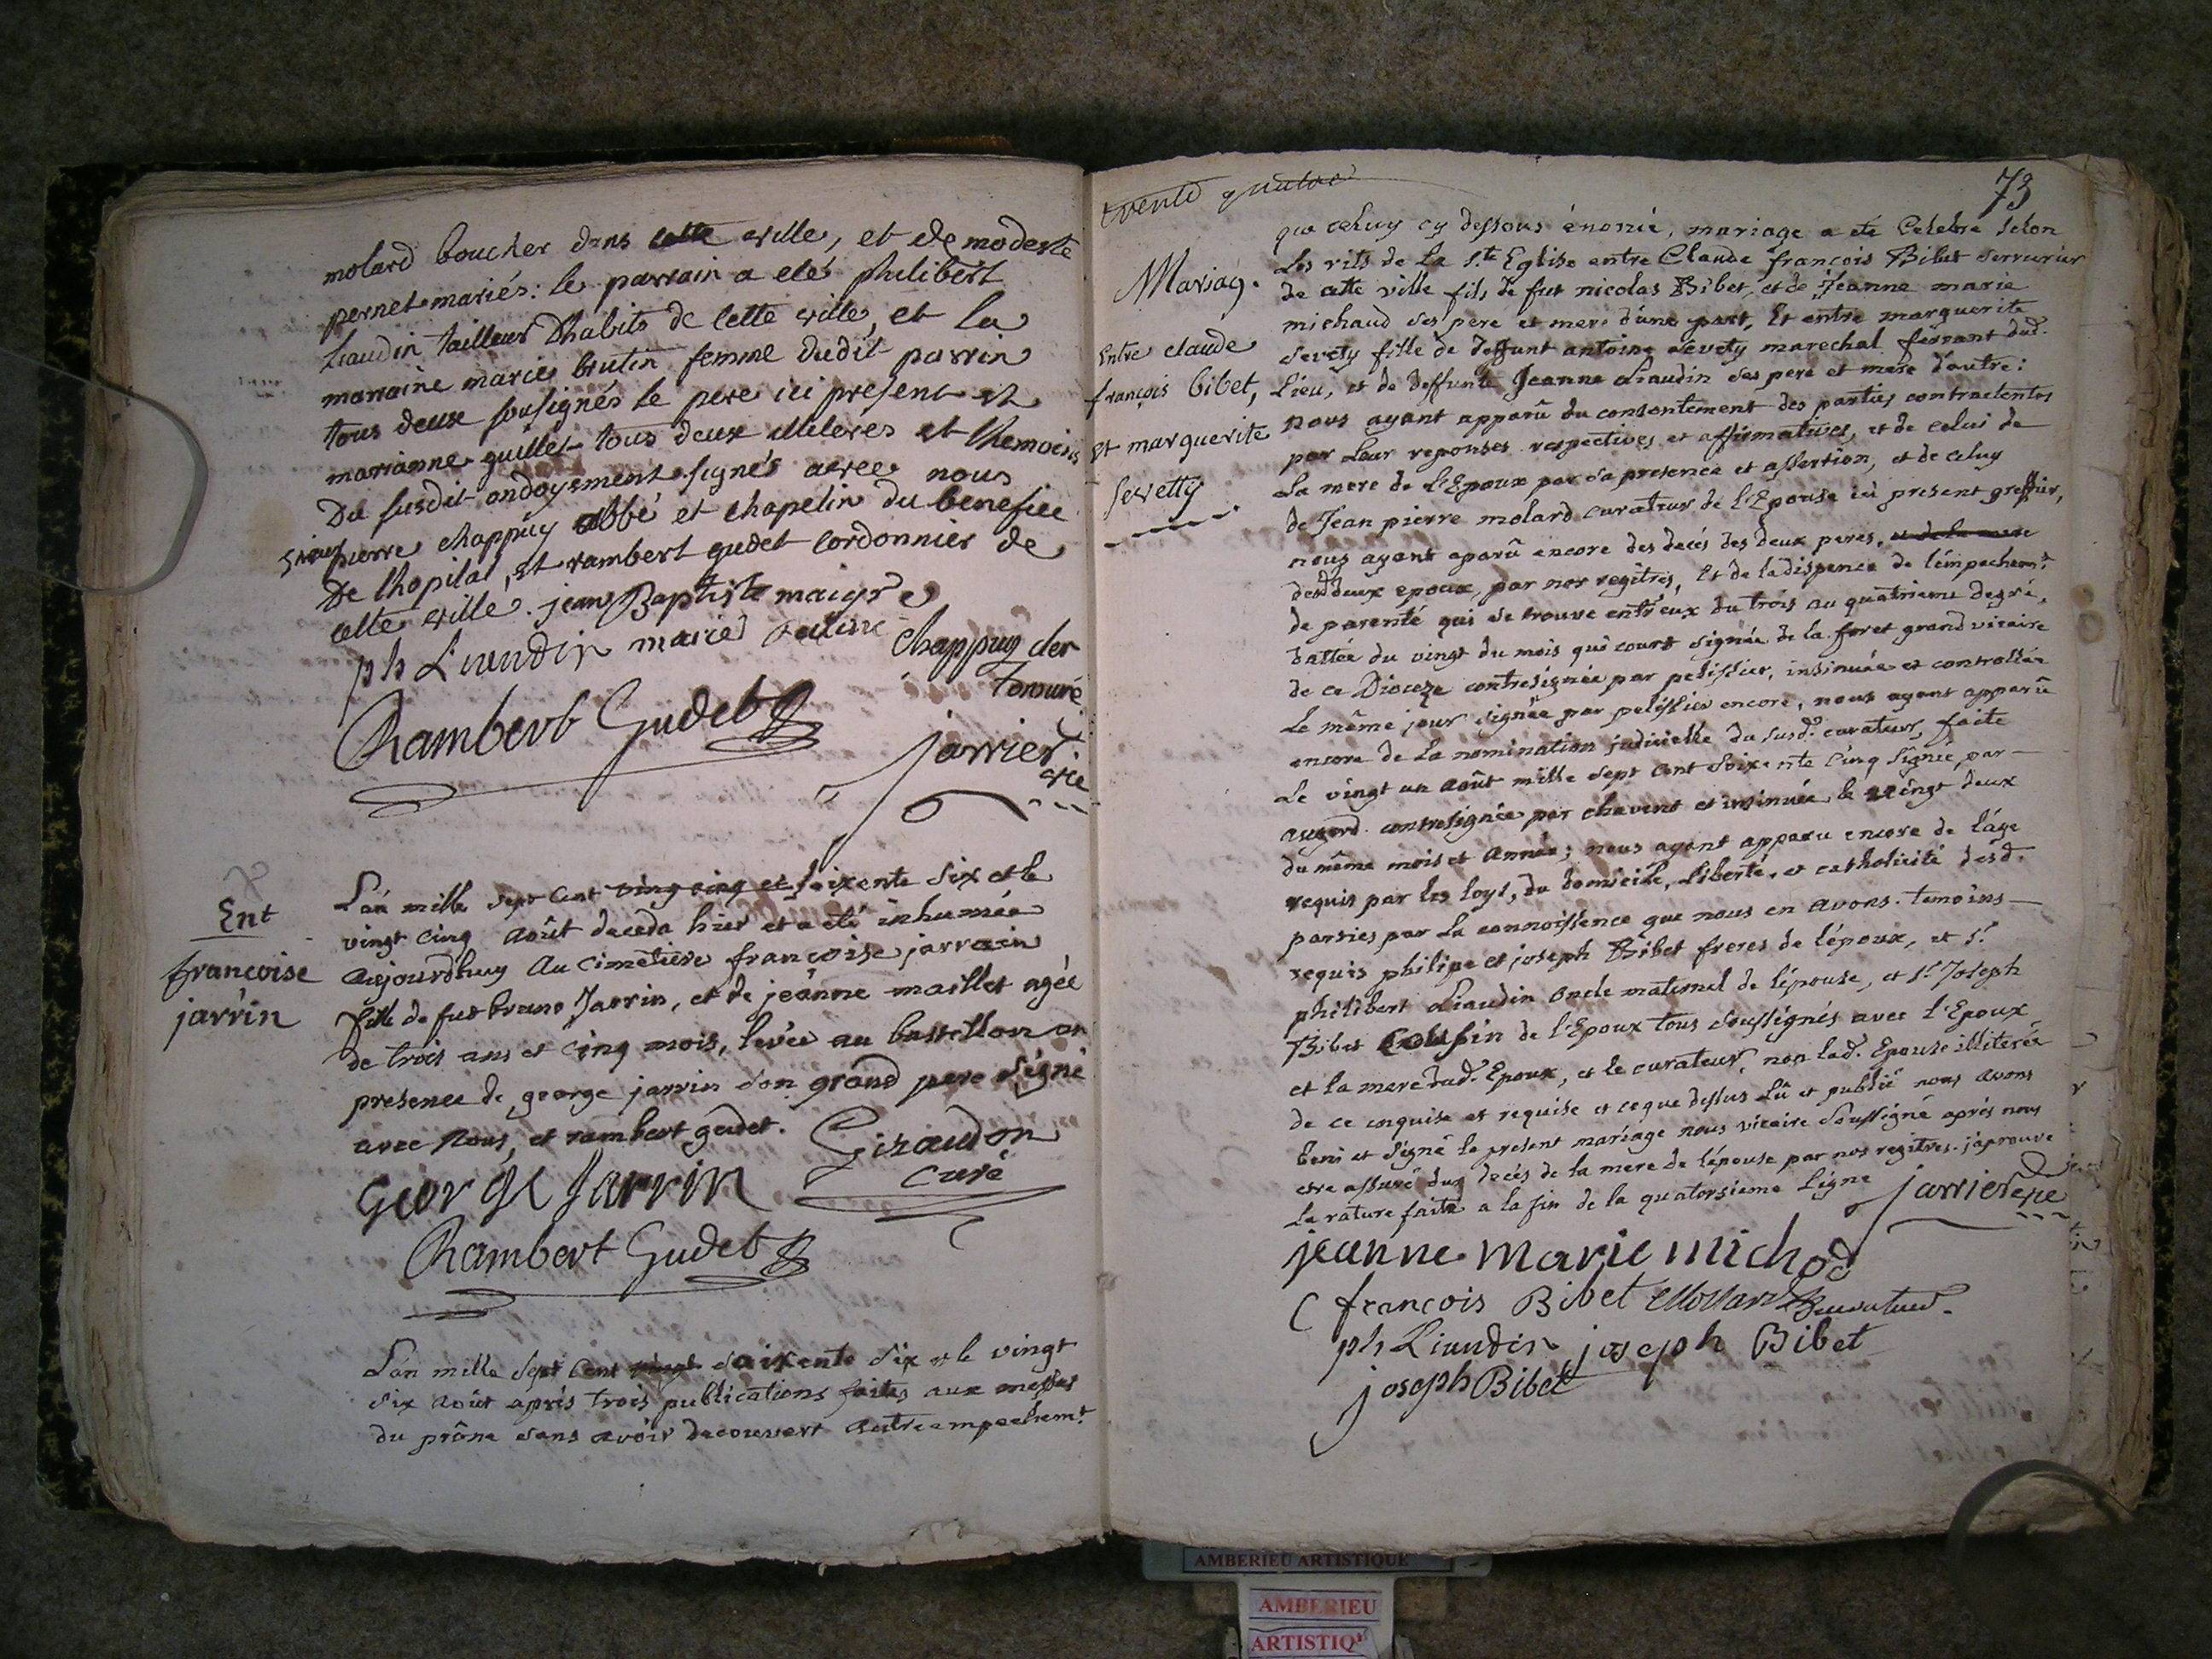 molard boucher dans cette ville, et de modeste
pernet mariés: le parrain a eté philibert
Liaudin tailleur D'habits de cette ville, et la
marraine marie brutin femme dudit parrin
tous deux sousignés le pere ici present et
marianne guillet tous deux illiterés et themoins
Du susdit ondoyement signés avec nous
Sieur pierre chappuy abbé et chapelin du benefice
De lhopital, et rambert gudet cordonnier de
cette ville. jean Baptiste maigre
ph Liaudin marie
chappuy cler
Tonsuré
Rambert Gudet
jarrier
vic
Ent
francoise
jarrin
L'an mille sept cent vingt cinq et soixente six et le
vingt cinq août deceda hier et a été inhumée
aujourdhuy au cimetiere françoise jarrain
fille de fut bruno Jarrin, et de jeanne maillet agée
de trois ans et cinq mois, levée au bastillon en
presence de george jarrin son grand pere signé
avec nous, et rambert gudet.
Giraudon
curé
George Jarrin
Rambert Gudet
L'an mille sept cent vingt soixente six et le vingt
six août après trois publications faites aux messes
du prône sans avoir decouvert autre empechemt
trente quatre
73
que celuy cy dessous énoncé, mariage a eté Celebré selon
Mariag.
Les rits de la Ste Eglise entre Claude françois Bibet serrurier
de cette ville fils de fut nicolas Bibet, et de Jeanne marie
michaud ses pere et mere d'une part, Et entre marguerite
Entre claude
françois bibet,
et marguerite
sevetty
Sevety fille de deffunt antoine sevety marechal ferrant dud.
Lieu, et de deffunte Jeanne Liaudin ses pere et mere d'autre:
nous ayant apparû du consentement des parties contractentes
par leur reponses respectives et affirmatives, et de celui de
La mere de L'Epoux par sa presence et assertion, et de celuy
de Jean pierre molard curateur de L'Epouse ici present greffier,
nous ayant aparû encore des decés des deux peres, et de la mere
desd deux epoux, par nos regîtres, Et de la dispence de l'empechemt
de parenté qui se trouve entr'eux du trois au quatrieme degré,
dattée du vingt du mois qui court signée de la foret grand vicaire
de ce Dioceze contresignée par pelissier, insinuée et controllée
Le même jour signée par pelissier encore, nous ayant apparû
encore de la nomination judicielle du susd. curateur, faite
Le vingt un août mille sept cent soixente cinq signée par
augerd contresignée par chavent et insinuée le vingt deux
du même mois et année; nous ayant apparu encore de l'age
requis par les loys, du domicile, liberté, et catholicité desd.
parties par la connoissence que nous en avons. temoins
requis philipe et joseph Bibet freres de l'époux, et Sr
philibert Liaudin oncle maternel de l'épouse, et Sr Joseph
Bibet cousin de l'Epoux tous soussignés avec l'Epoux
et la mere dud. Epoux, et le curateur, non lad. Epouse illiterée
de ce enquise et requise et ce que dessus lû et publié nous avons
beni et signé le present mariage nous vicaire soussigné après nous
etre assuré du decés de la mere de l'épouse par nos regitres. j'aprouve
La rature faite a la fin de la quatorsieme Ligne
jarrier
jeanne marie michod
C françois Bibet Mollard curateur
ph Liaudin joseph Bibet
joseph Bibet
AMBERIEU ARTISTIQUE
AMBERIEU
ARTISTIQ